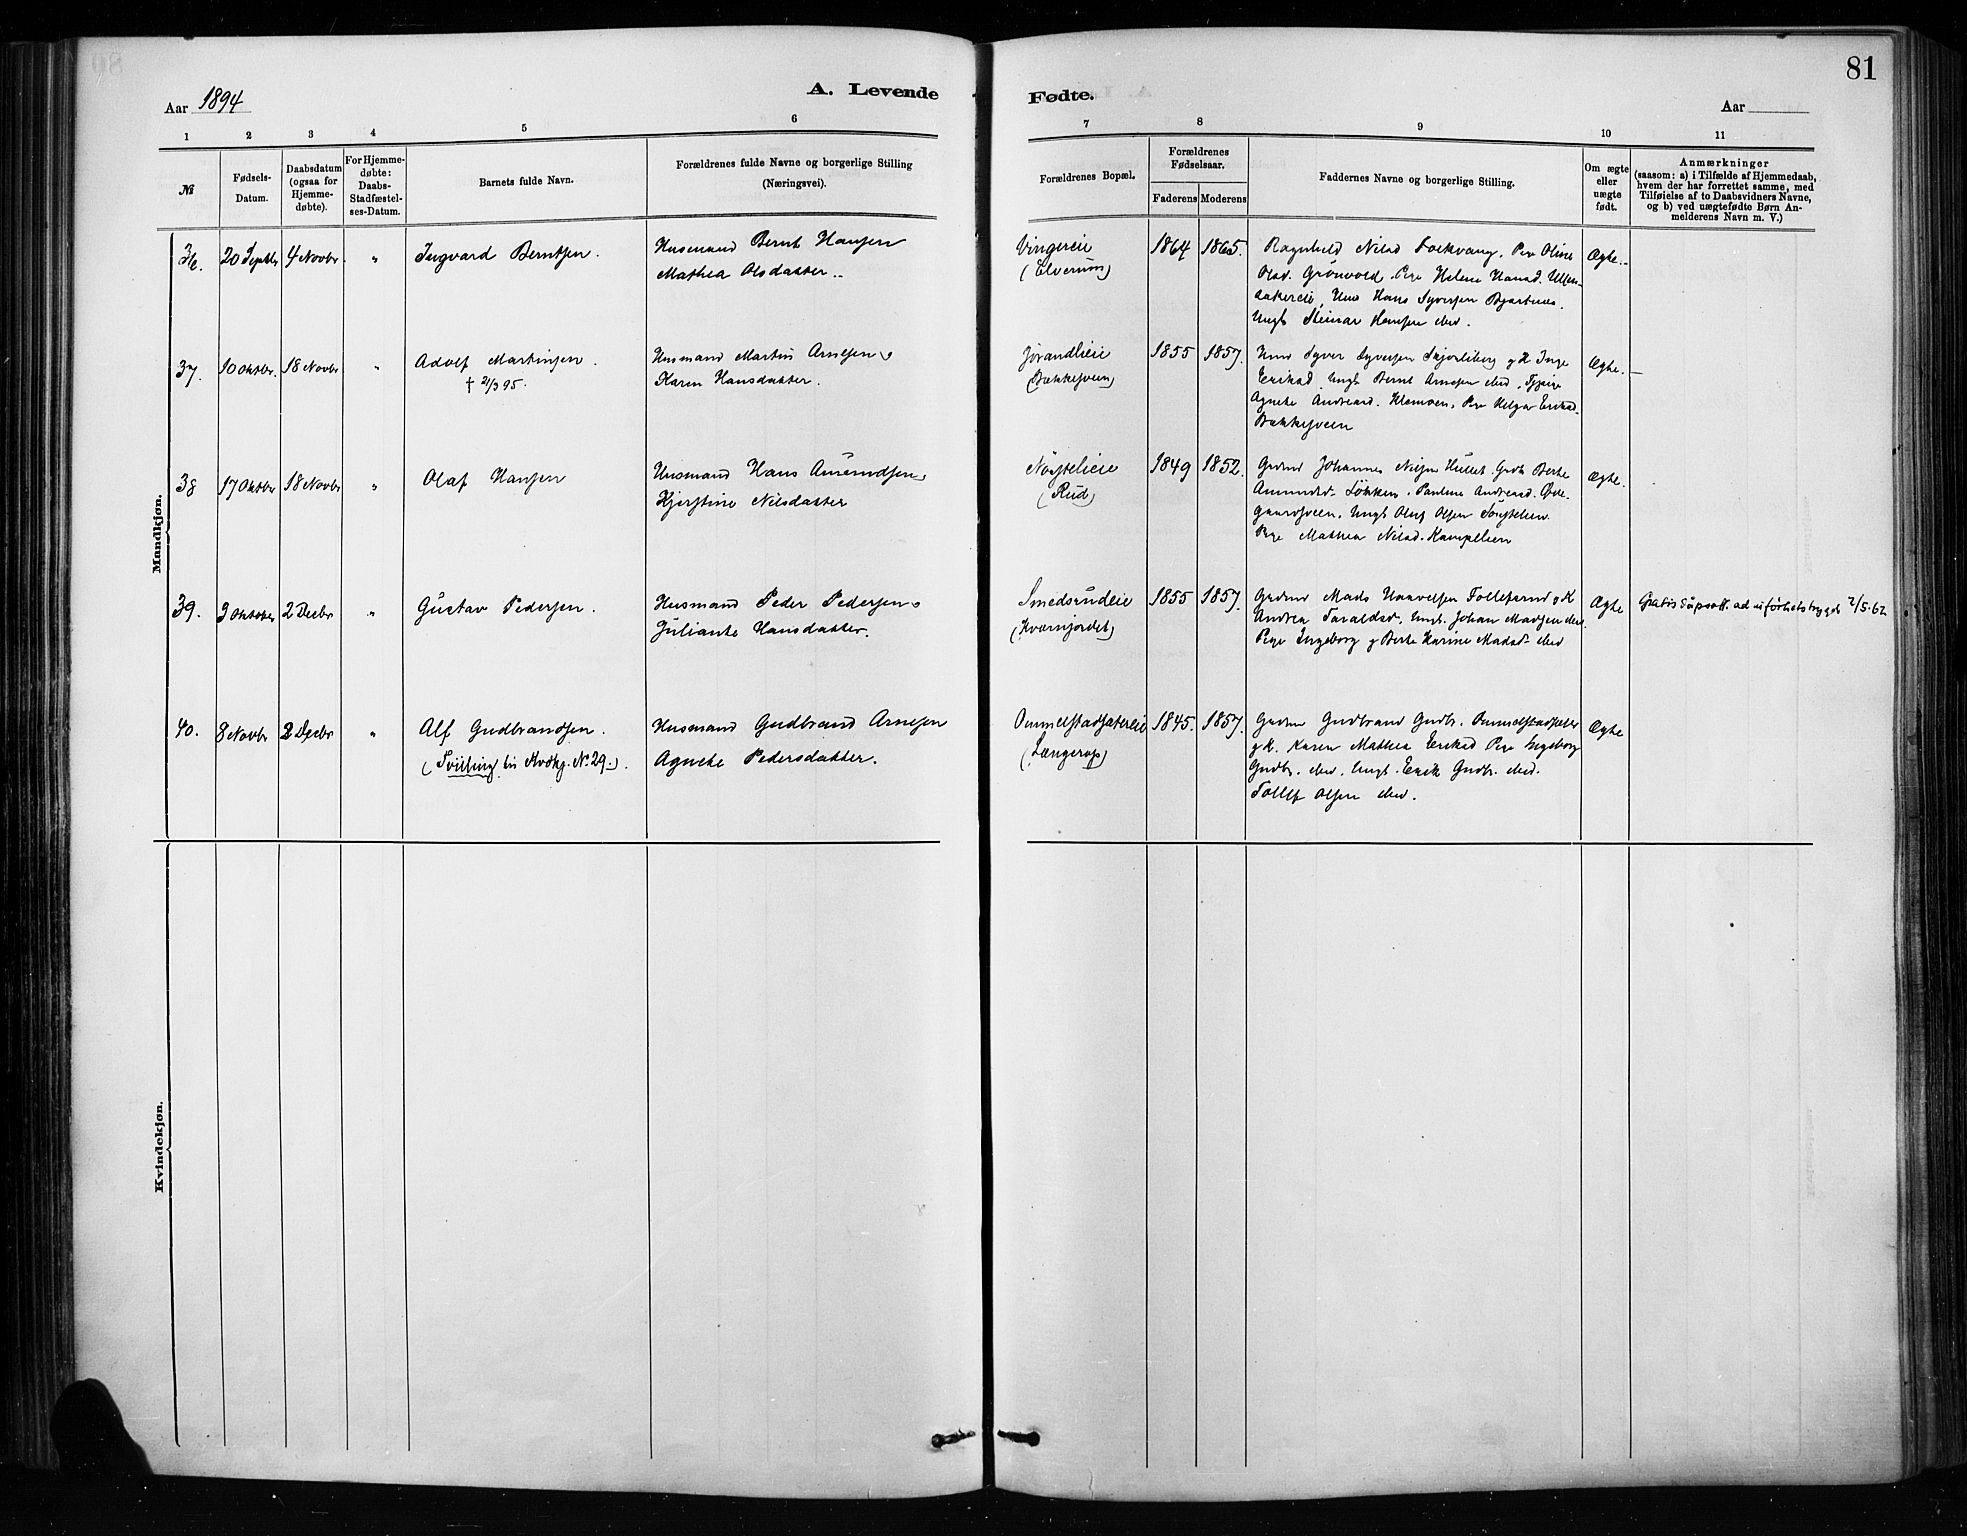 81
Aar 1894
A. Levende
Fødte.
Aar
1 2 3 4 5 6
7 8 9 10 11
No
Fødsels-
Datum.
Daabsdatum
(ogsaa for
Hjemme-
døbte).
For Hjemme-
døbte:
Daabs-
Stadfæstel-
ses-Datum.
Barnets fulde Navn.
Forældrenes fulde Navne og borgerlige Stilling
(Næringsvei).
Forældrenes Bopæl.
Forældrenes
Fødselsaar.
Faderens Moderens
Faddernes Navne og borgerlige Stilling.
Om ægte
eller
uægte
født.
Anmærkninger
(saasom: a) i Tilfælde af Hjemmedaab,
hvem der har forrettet samme, med
Tilføielse af to Daabsvidners Navne,
og b) ved uægtefødte Børn An-
melderens Navn m. V.)
Mandkjøn.
36. 20 Septbr 4 Novbr " Ingvard Berntsen.
Husmand Bernt Hansen
Mathea Olsdatter
Vingereie
(Elverum)
1864 1865.
Ragnhild Nilsd Folkvang, Pige Oline
Olsd. Grönvold, Pige Helene Hansd. Ullen-
sakereie, Hans Syversen
Ungk Steinar Hansen
Ægte.
37. 10 Oktbr. 18 Novbr " Adolf Martinsen.
† 2/3 95.
Husmand Martin Arnesen
Karen Hansdatter.
Jørandlieie
(Bækkesveen)
1855 1857.
Syver Syversen g K Inge
Eriksd, Ungk Bernt Arnesen
Agnete Andreasd. Klemoen, Pige Helga Eriksd.
Bækkesveen
Ægte.
38 17 Oktbr 18 Novbr " Olaf Hansen
Husmand Hans Amundsen
Kjerstine Nilsdatter
Nøsteleie
(Rud)
1849 1852.
Grdmd Johannes Nilsen Grdk Berte
Amundsd Løkken, Pauline Andreasd. Øde-
gaardsveen, Ungk Oluf Olsen
Pige Mathea Nilsd.
Ægte.
39. 9 Oktober 2 Decbr " Gustav Pedersen.
Husmand Peder Pedersen
Juliante Hansdatter.
Smedsrudeie
(Kværnjordet)
1855 1857.
Grdmd Mads g K
Andrea Taraldsd, Ungk. Johan Madsen
Pige Ingeborg g Berte Karine Madsd
Ægte
Gratis dåpsatt. ad uførhetstrygd 2/5-62
40. 8 Novbr 2 Decbr " Alf Gudbrandsen.
(Tvilling til Kvdkj. No 29.)
Husmand Gudbrand Arnesen
Agnete Pedersdatter.
Ommelstadsætereie
(Længerop)
1845. 1857.
Grdmd Gudbrand Gudbr. Ommelstadsæter
g K. Karen Mathea Eriksd Pige Ingeborg
Gudbr. Ungk. Erik Gudbr.
Tollef Olsen
Ægte
Kvindekjøn.